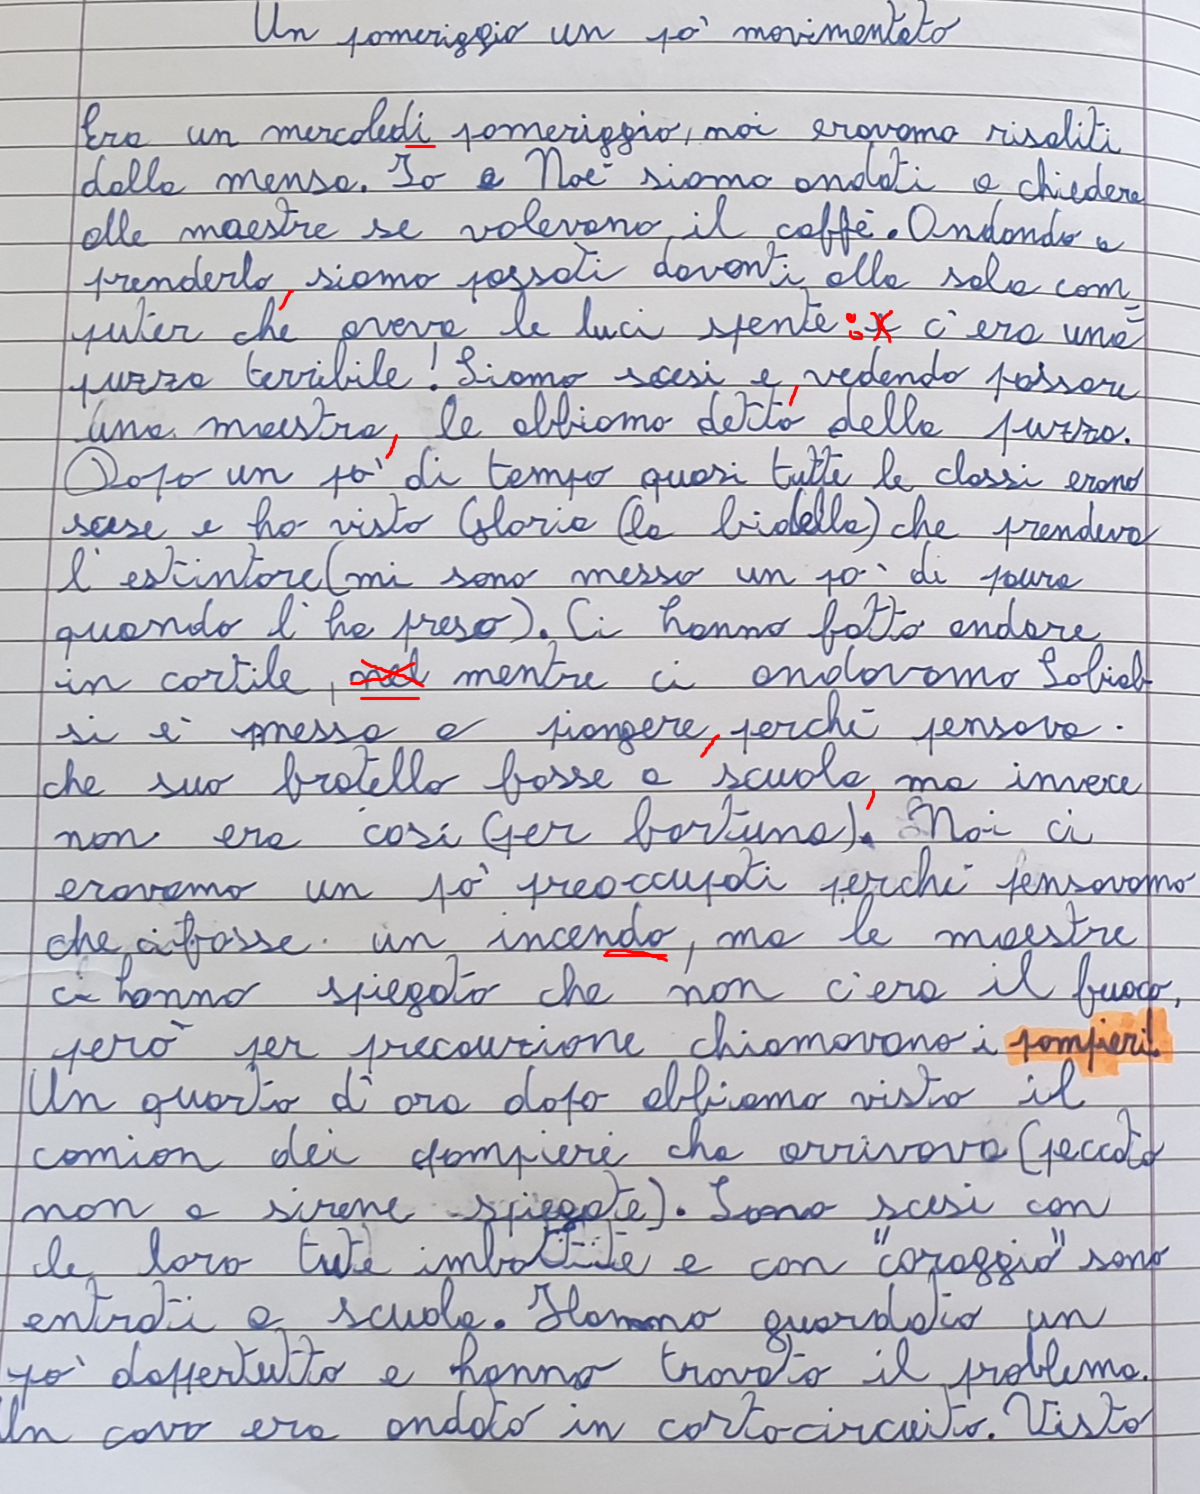 Un pomeriggio un po' movimentato
Era un mercoledi pomeriggio, noi eravamo risaliti
dalla mensa. Io e Noè siamo andati a chiedere
alle maestre se volevano il caffè. Andando a
prenderlo, siamo passati davanti alla sala com=
puter che aveva le luci spente: c'era una
puzza terribile! Siamo scesi e, vedendo passare
una maestra, le abbiamo detto della puzza.
Dopo un po' di tempo quasi tutte le classi erano
scese e ho visto Gloria (la bidella) che prendeva
l'estintore (mi sono messo un po' di paura
quando l'ha preso). Ci hanno fatto andare
in cortile, nel mentre ci andavamo
si è messa a piangere, perché pensava
che suo fratello fosse a scuola, ma invece
non era così (per fortuna). Noi ci
eravamo un po' preoccupati perché pensavamo
che ci fosse un incendo, ma le maestre
ci hanno spiegato che non c'era il fuoco,
però per precauzione chiamavano i pompieri.
Un quarto d'ora dopo abbiamo visto il
camion dei pompieri che arrivava (peccato
non a sirene spiegate). Sono scesi con
le loro tute imbottite e con "coraggio" sono
entrati a scuola. Hanno guardato un
po' dappertutto e hanno trovato il problema.
Un cavo era andato in cortocircuito. Visto